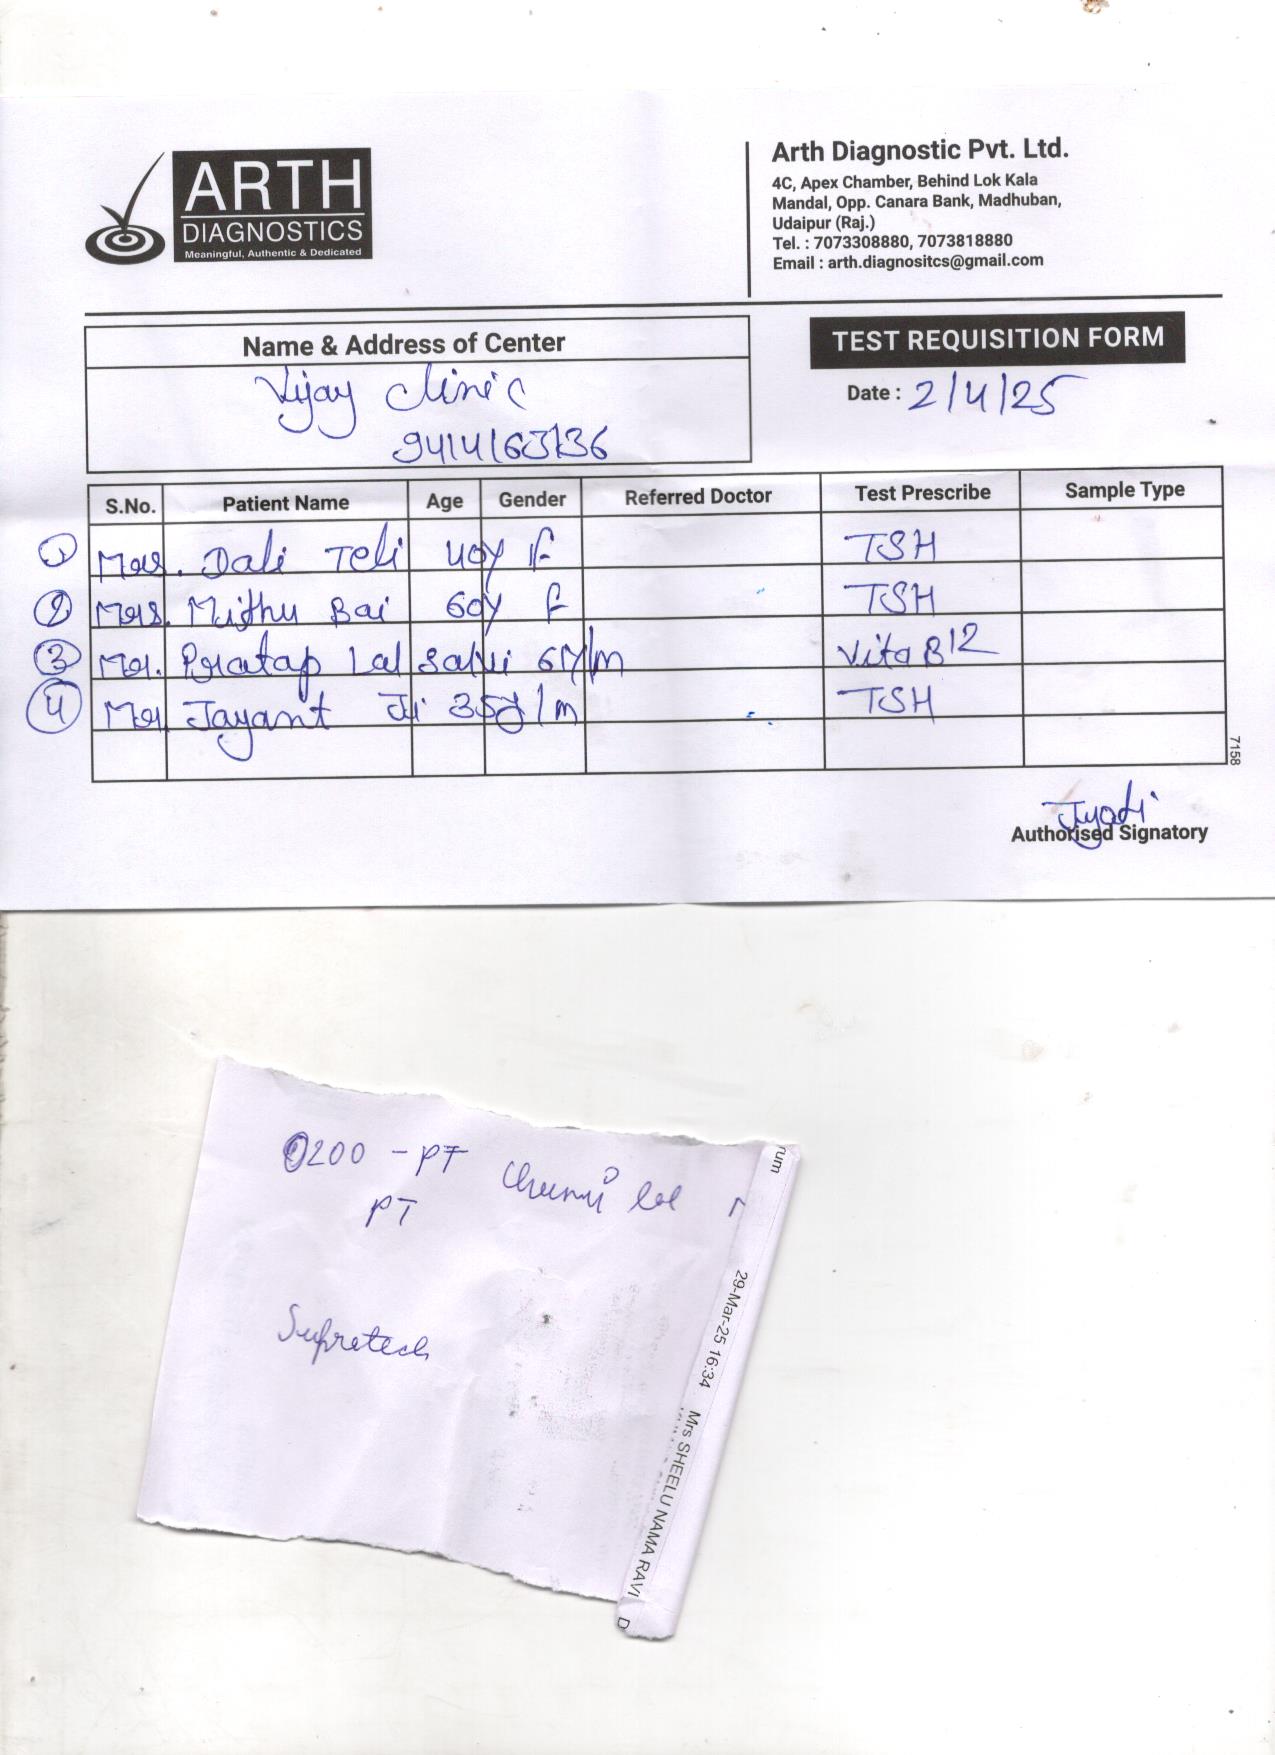 ARTH
DIAGNOSTICS
Meaningful, Authentic & Dedicated
Arth Diagnostic Pvt. Ltd.
4C, Apex Chamber, Behind Lok Kala
Mandal, Opp. Canara Bank, Madhuban,
Udaipur (Raj.)
Tel. : 7073308880, 7073818880
Email : arth.diagnositcs@gmail.com
Name & Address of Center
Vijay Clinic
9414163136
TEST REQUISITION FORM
Date : 2/4/25
S.No. Patient Name Age Gender Referred Doctor Test Prescribe Sample Type
1 Mrs. Dali Teli 40y F TSH
2 Mrs. Mithu Bai 60y F TSH
3 Mr. Pratap Lal Salvi 67/m Vita B12
4 Mr. Jayant Ji 35y/m TSH
7158
Jyoti
Authorised Signatory
0200 - PT Chunni lal
PT
Supretech
rum
29-Mar-25 16:34
Mrs SHEELU NAMA RAVI D